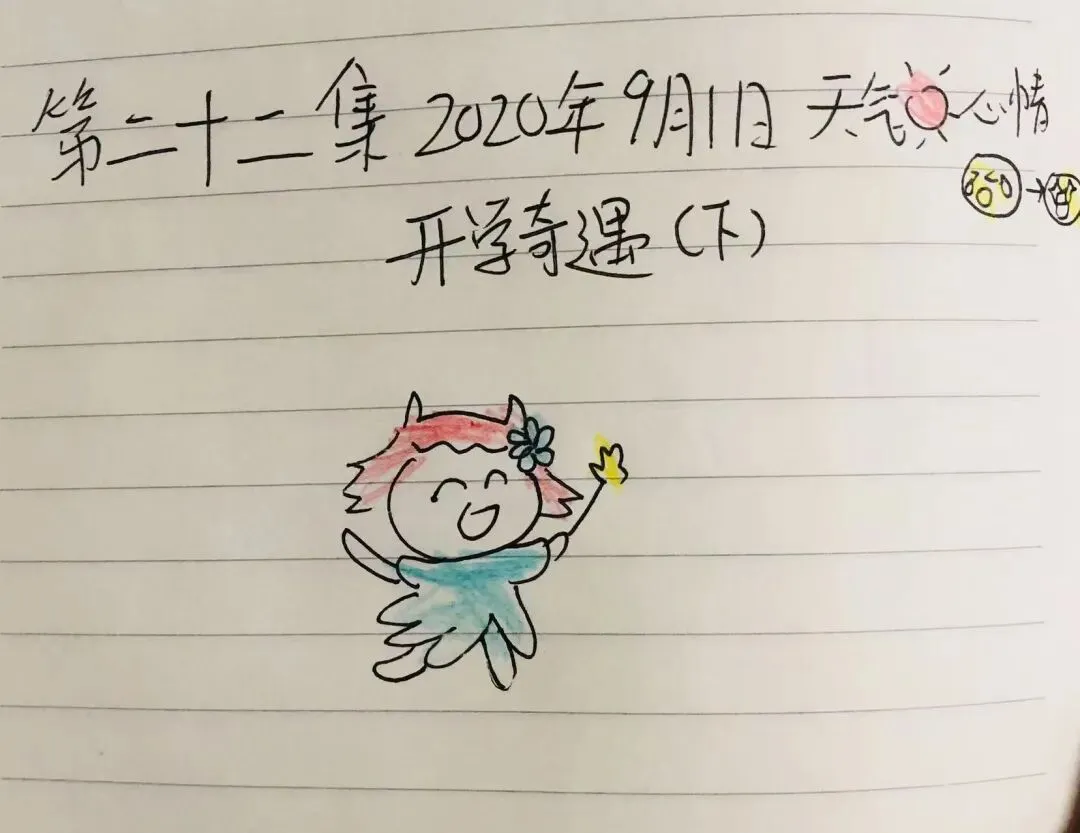 第二十二集 2020年9月1日 天气 心情
开学奇遇(下)